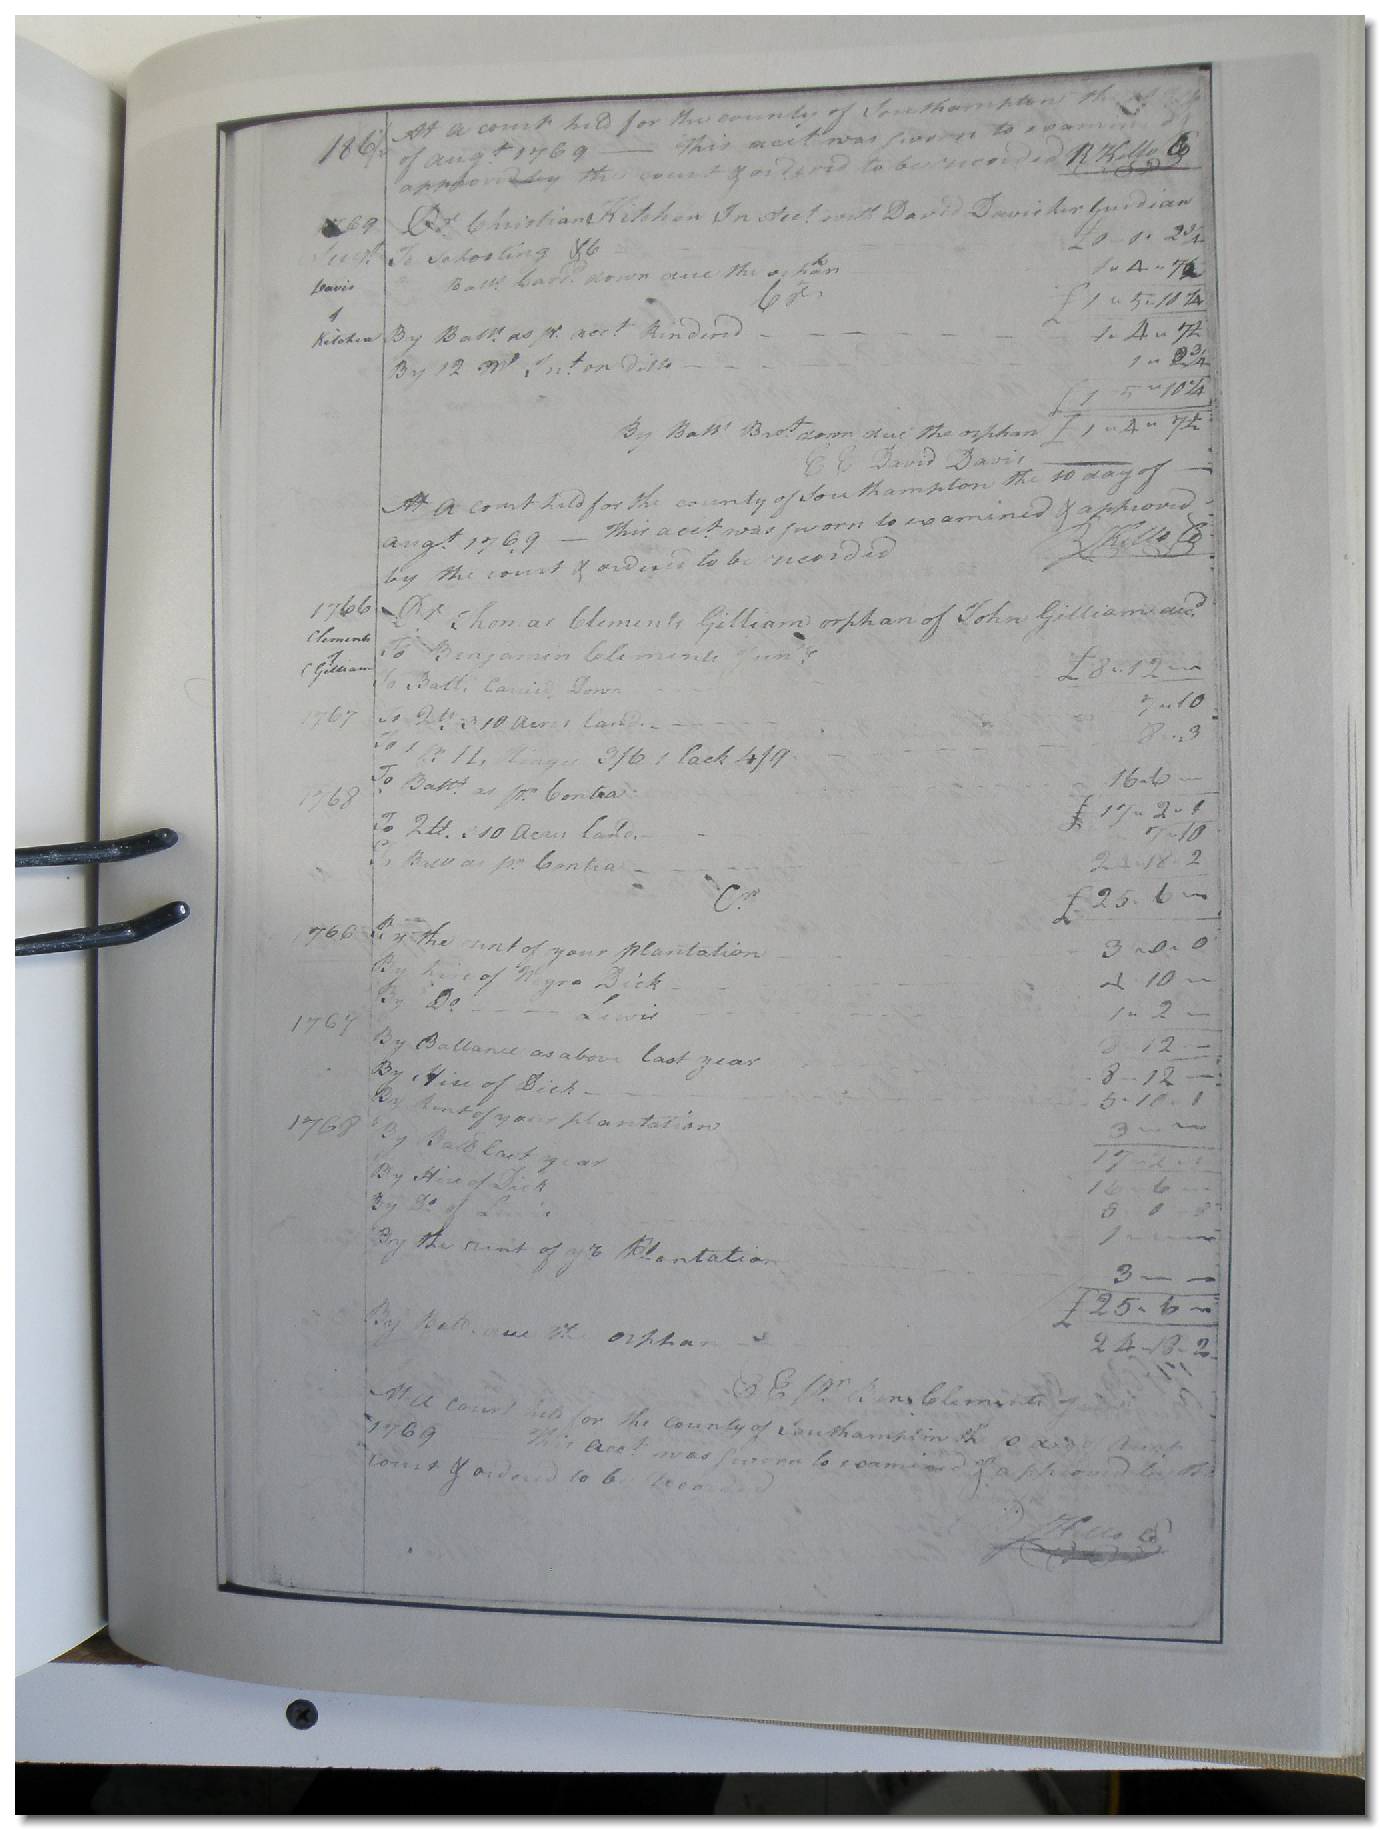 186
At a court held for the county of Southampton the
of augt 1769 — This acct was sworn to examined &
approved by the court & ordered to be recorded R Kello Cs
1769 Dr Christian Kitchen In Acct with David Davis her Gurdian
To Schooling &c £0 1 2¾
Davis Balle Carrd down due the orphan 1 " 4 " 7½
& Cr. £1 " 5 " 10¼
Kitchen By Balle as pr. acct Rendered 1 " 4 " 7½
By 12 Mo Int on Ditto 1 " 2¾
£1 " 5 " 10¼
By Balle Brot down due the orphan £1 " 4 " 7½
E E David Davis
At a court held for the county of Southampton the 10 day of
augt 1769 — This acct was sworn to examined & approved
by the court & ordered to be recorded Kello Cs
1766 Dr Thomas Clements Gilliam orphan of John Gilliam decd
Clements To Benjamin Clements Junr
& To Balle Carried Down £8 " 12 "
C Gilliam
1767 To 2tt 310 Acres land 7 " 10
To 1 pr 3/6 1 lack 4/9 8 " 3
To Balle as pr Contra 16 " 6 —
1768 £17 " 2 " 1
To 2tt 310 Acres land 7 " 10
To Balle as pr Contra 24 " 18 " 2
Cr £25 " 6 "
1766 By the rent of your plantation 3 " 0 " 0
By hire of Negro Dick 4 " 10 "
By Do Lewis 1 " 2 "
8 " 12 —
1767 By Ballance as above last year 8 " 12 —
By Hire of Dick 5 " 10 " 1
By Rent of your plantation 3 " "
17 " 2 " 1
1768 By Balle last year 16 " 6 "
By Hire of Dick
By Do of Lewis 1
By the rent of yr Plantation 3 — —
£25 " 6 "
By Balle due the orphan 24 " 18 " 2
E E pr Ben Clements
At a court held for the county of Southampton the day of
1769 This acct was sworn to examined & approved by the
court & ordered to be recorded
Kello Cs